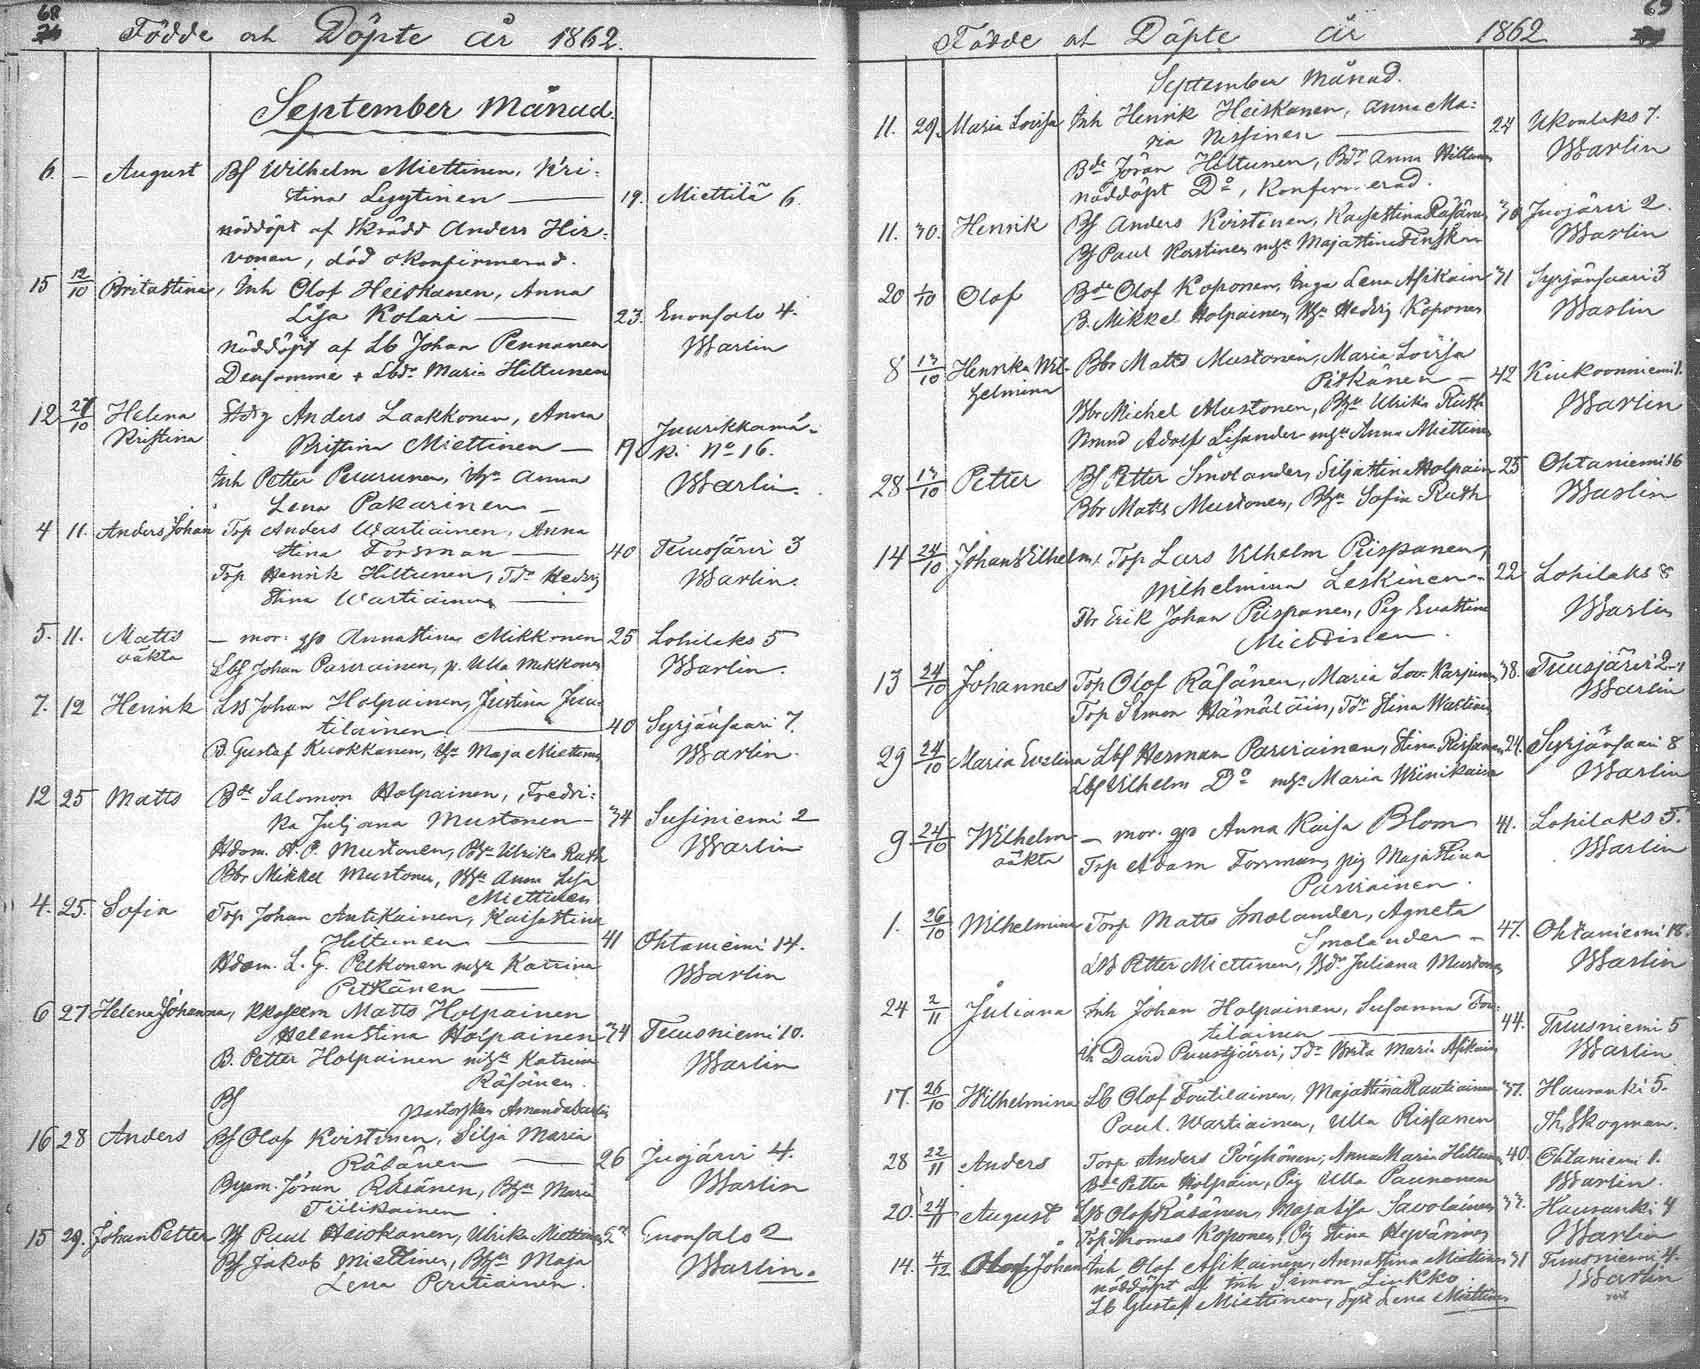 68
Födde och Döpte år 1862.
September Månad.
6. — August Bf Wilhelm Miettinen, Kri-
stina Lyytinen — 19. Miettilä 6.
nöddöpt af Skrädd Anders Hir-
vonen, död okonfirmerad.
15 12/10 Britastina, Inh Olof Heiskanen, Anna
Lisa Kolari — 23. Enonsalo 4.
nöddöpt af Lb Johan Pennanen Warlin
Densamme + Lbdr Maria Hiltunen
12 27/10 Helena Anders Laakkonen, Anna
Kristina Kristina Miettinen — 19 Juurikkamä-
ki No 16.
Inh Petter Peurunen, Hu Anna Warlin.
Lena Pakarinen —
4 11. Anders Johan Torp Anders Wartiainen, Anna
Stina Forsman — 40 Tuusjärvi 3
Torp Henrik Hiltunen, Tdr Hedvig Warlin.
Stina Wartiainen —
5. 11. Matts — mor: Annastina Mikkonen 25 Lohilaks 5
oäkta Lbf Johan Parviainen, p. Ulla Mikkonen Warlin.
7. 12 Henrik Lb Johan Holpainen, Justina Juu-
tilainen — 40 Syrjänsaari 7.
B. Gustaf Ruokkanen, Maja Miettinen Warlin.
12 25 Matts Bde Salomon Holpainen, Fredri-
ka Juljana Mustonen — 34 Susiniemi 2
Hdom. A. P. Mustonen, Ulrika Ruth Warlin
Bbr Mikkel Mustonen, Anna Lisa
Miettinen
4. 25. Sofia Torp Johan Antikainen, Kaisastina
Hiltunen — 41 Ohtaniemi 14.
Hdom. L. G. Pelkonen Katrina Warlin
Pitkänen —
6 27 Helena Johanna, Matts Holpainen
Helenastina Holpainen 34 Tuusniemi 10.
B. Petter Holpainen Katrina Warlin
Räsänen.
Bf
Amanda
16 28 Anders Bf Olof Kvistinen, Silja Maria
Räsänen — 26 Juojärvi 4.
Jöran Räsänen, Maria Warlin
Tiilikainen.
15 29. Johan Petter Bf Paul Heiskanen, Ulrika Miettinen Enonsalo 2
Bf Jakob Miettinen, Maja Warlin.
Lena Pertiainen.
69
Födde och Döpte år 1862
September Månad.
11. 29. Maria Lovisa Inh Henrik Heiskanen, Anna Ma-
ria Nissinen — 24 Ukonlaks 7.
Bde Jöran Hiltunen, Bdr Anna Hiltunen Warlin
nöddöpt Do, Konfirmerad.
11. 30. Henrik Bf Anders Kvistinen, Kaisastina Räsänen 30 Juojärvi 2.
Bf Paul Majastina Warlin
20 1/10 Olof Bde Olof Koponen, Inga Lena Asikain 31 Syrjänsaari 3
B. Mikkel Holpainen, Hedvig Koponen Warlin
8 13/10 Henrika Wil- Bbr Matts Mustonen, Maria Lovisa
helmina Pitkänen — 42 Kiukoonniemi 1.
Bbr Michel Mustonen, Ulrika Ruth Warlin
Adolf Lisander Anna Miettinen
28 13/10 Petter Bf Petter Smolander, Siljastina Holpain 25 Ohtaniemi 16
Bbr Matts Mustonen, Sofia Ruth Warlin
14 24/10 Johan Wilhelm, Torp Lars Wilhelm Piispanen,
Wilhelmina Leskinen — 22 Lohilaks 8
Tbr Erik Johan Piispanen, Pig Evastina Warlin
Miettinen.
13 24/10 Johannes Torp Olof Räsänen, Maria Lov. 38. Tuusjärvi 2
Torp Simon Hämäläin, Tdr Stina Wartiain Warlin
29 24/10 Maria Evelina Lbf Herman Parviainen, Stina Rissanen 24. Syrjänsaari 8
Lbf Wilhelm Do Maria Wänikainen Warlin
9 24/10 Wilhelm — mor. Anna Kaisa Blom 41. Lohilaks 5.
oäkta Torp Adam Forsman, pig Majastina Warlin
Parviainen.
1. 26/10 Wilhelmina Torp Matts Smolander, Agneta
Smolander — 47. Ohtaniemi 18.
Petter Miettinen, Juliana Mustonen Warlin
24 2/11 Juliana Inh Johan Holpainen, Susanna Tou-
tilainen — 44. Tuusniemi 5
David Puustjärvi, Tdr Brita Maria Asikain Warlin
17. 26/10 Wilhelmina Lb Olof Toutilainen, Majastina Rautiainen 37. Hausanki 5.
Paul. Wartiainen, Ulla Rissanen Th. Skogman.
28 22/11 Anders Torp Anders Pöyhönen, Anna Maria Hiltunen 40. Ohtaniemi 1.
Bde Petter Holpain, Pig Ulla Paunonen Warlin.
20. 24/11 August Olof Räsänen, Majalisa Savolainen 33. Hausanki 4
Torp Thomas Koponen, Pig Stina Hyvärinen Warlin
14. 4/12 Olof Johan Inh Olof Asikainen, Annastina Miettinen 31 Tuusniemi 4.
nöddöpt af Inh Simon Linkko. Warlin
Lb Gustaf Miettinen, Lena Miettinen